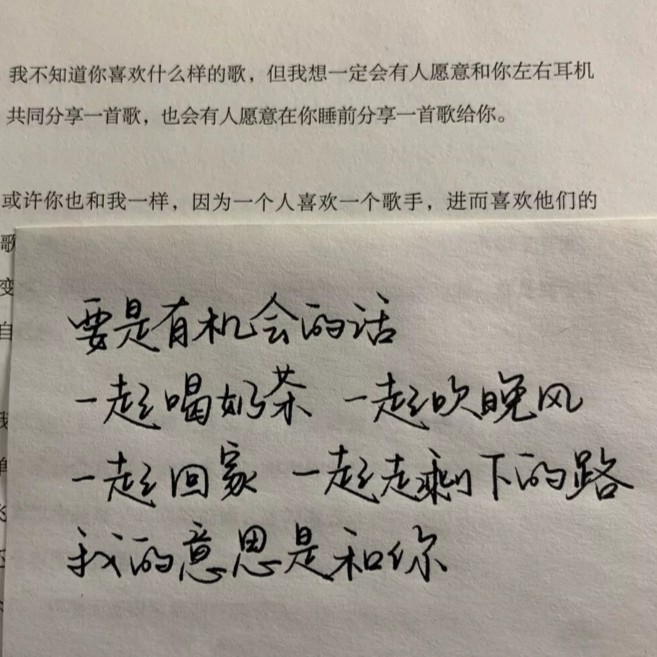 我不知道你喜欢什么样的歌，但我想一定会有人愿意和你左右耳机
共同分享一首歌，也会有人愿意在你睡前分享一首歌给你。
或许你也和我一样，因为一个人喜欢一个歌手，进而喜欢他们的
歌
变
自
我
要是有机会的话
一起喝奶茶 一起吹晚风
一起回家 一起走剩下的路
我的意思是和你